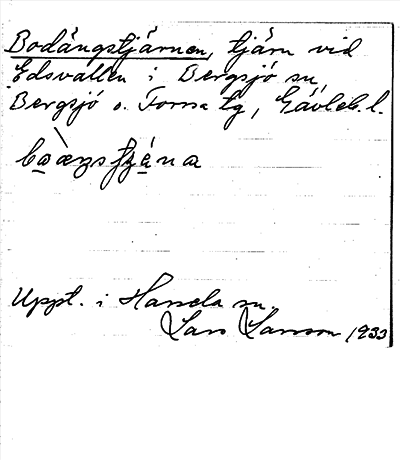 Bodängstjärnen, tjärn vid
Edsvallen i Bergsjö sn,
Bergsjö o. Forsa tg, Gävleb. l.
Uppt. i Hassela sn.
Lars Larsson 1933